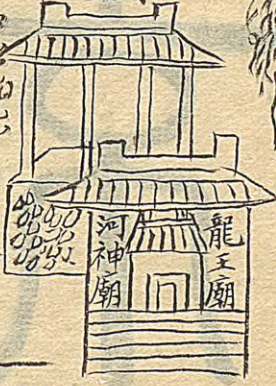 龍王廟
河神廟